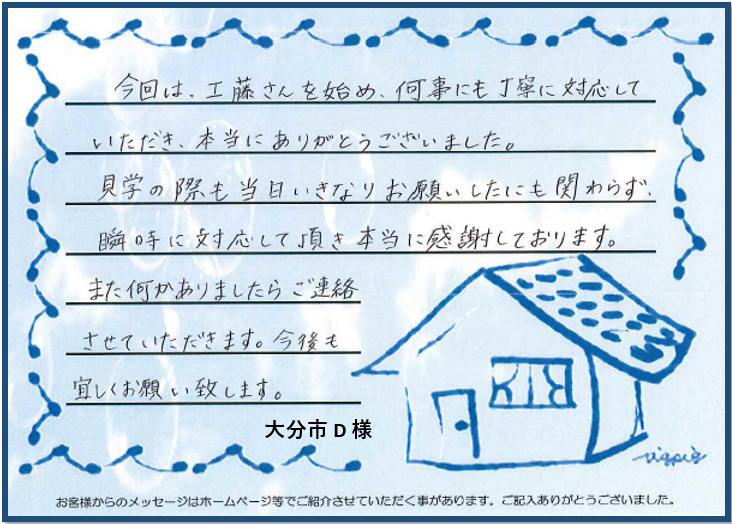 今回は、工藤さんを始め、何事にも丁寧に対応して
いただき、本当にありがとうございました。
見学の際も当日いきなりお願いしたにも関わらず、
瞬時に対応して頂き本当に感謝しております。
また何かありましたらご連絡
させていただきます。今後も
宜しくお願い致します。
大分市 D 様
お客様からのメッセージはホームページ等でご紹介させていただく事があります。ご記入ありがとうございました。